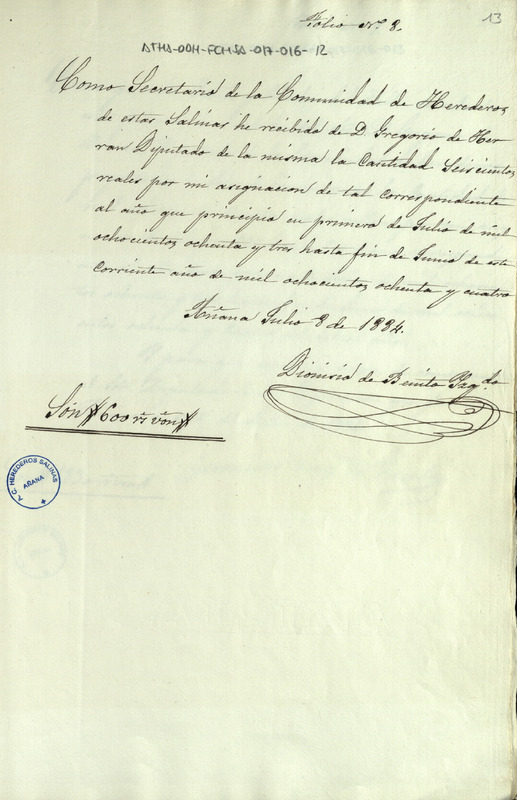 Folio Nº 8.
13
ATHA-DOH-FCHSA-017-016-12
Como Secretario de la Comunidad de Herederos
de estas Salinas he recibido de D Gregorio de Her
ran Diputado de la misma la Cantidad Seiscientos
reales por mi asignacion de tal correspondiente
al año que principió en primero de Julio de mil
ochocientos ochenta y tres hasta fin de Junio de este
corriente año de mil ochocientos ochenta y cuatro
Añana Julio 8 de 1884.
Dionisio de Benito
Són 600 rs vón
Y. C. HEREDEROS SALINAS
AÑANA